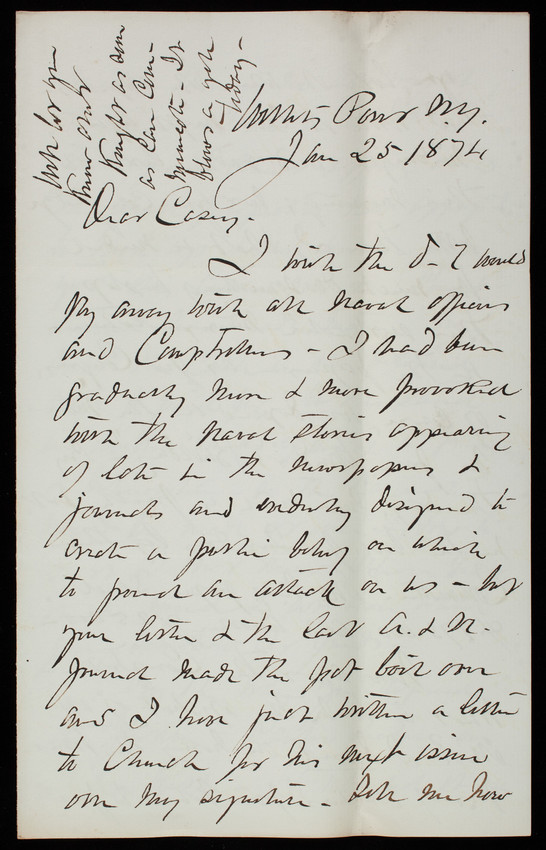 Willets Point N.Y.
Jan 25 1874
Dear Casey -
I wish the d-l would
fly away with all naval officers
and Comptrollers - I had been
gradually more & more provoked
with the naval stories appearing
of late in the newspapers &
journals and evidently designed to
create a public belief on which
to found an attack on us - but
your letter & the last A. & N.
Journal made the pot boil over
and I have just written a letter
to Church for his next issue
over my signature - Tell me how
Will let you
know about
Knight as soon
as can com-
municate - It
blows a gale
today -